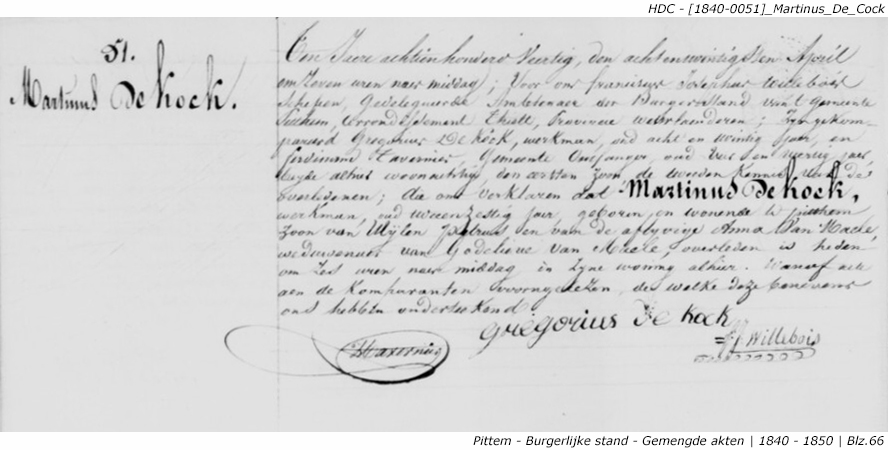 HDC - [1840-0051]_Martinus_De_Cock
51.
Martinus De kock.
Een Jaere achtienhonderd Veertig, den achtentwintigsten April
om Zeven uren naer middag; Voor ons franciscus Willebois
Schepen, Gedelegueerde Ambtenaer der Burgerstand van t Gemeente
Pitthem, Arrondissement Thielt, Provencie westvlaenderen; Zyn gekom-
pareerd Gregorius De kock, werkman, oud acht en twintig jaer, en
ferdinand Tavernier, Gemeente Ontfanger, oud en veertig jaer,
beyde alhier woonachtig, den eersten Zoon de tweeden kennis van de
overledenen; die ons verklaeren dat Martinus De kock,
werkman, oud tweenzestig jaer, geboren, en wonende te pitthem
Zoon van Wylen petrus en van de aflyvige Anna Van Maele,
weduwenaer van Godelieve Van Maele, overleden is heden
om Zes uren naer middag in Zyne woning alhier. Waervan acte
aen de komparanten voorengelezen, de welke deze benevens
ons hebben onderteekend
Gregorius De kock
Tavernier
Willebois
Pittem - Burgerlijke stand - Gemengde akten | 1840 - 1850 | Blz.66